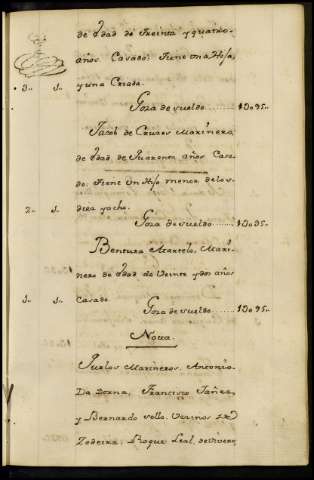 de Edad de Treinta y quatro
años Casado: Tiene Una Hija,
3.. 1.. y una Criada.
Goza de sueldo ........ 10..95..
Jacob de Marinero
de Edad de Quarenta años Casa-
do. Tiene Un Hijo menor de los
2.. 1.. diez y ocho.
Goza de sueldo ....... 10..95..
Bentura Marcelo, Mari-
nero de Edad de Veinte y dos años
1.. 1.. Casado.
Goza de sueldo ...... 10..95..
Nota.
Marineros, Antonio
Da Francisco
y Bernardo Vecinos de
Zedeira, Roque Leal, de Vivero